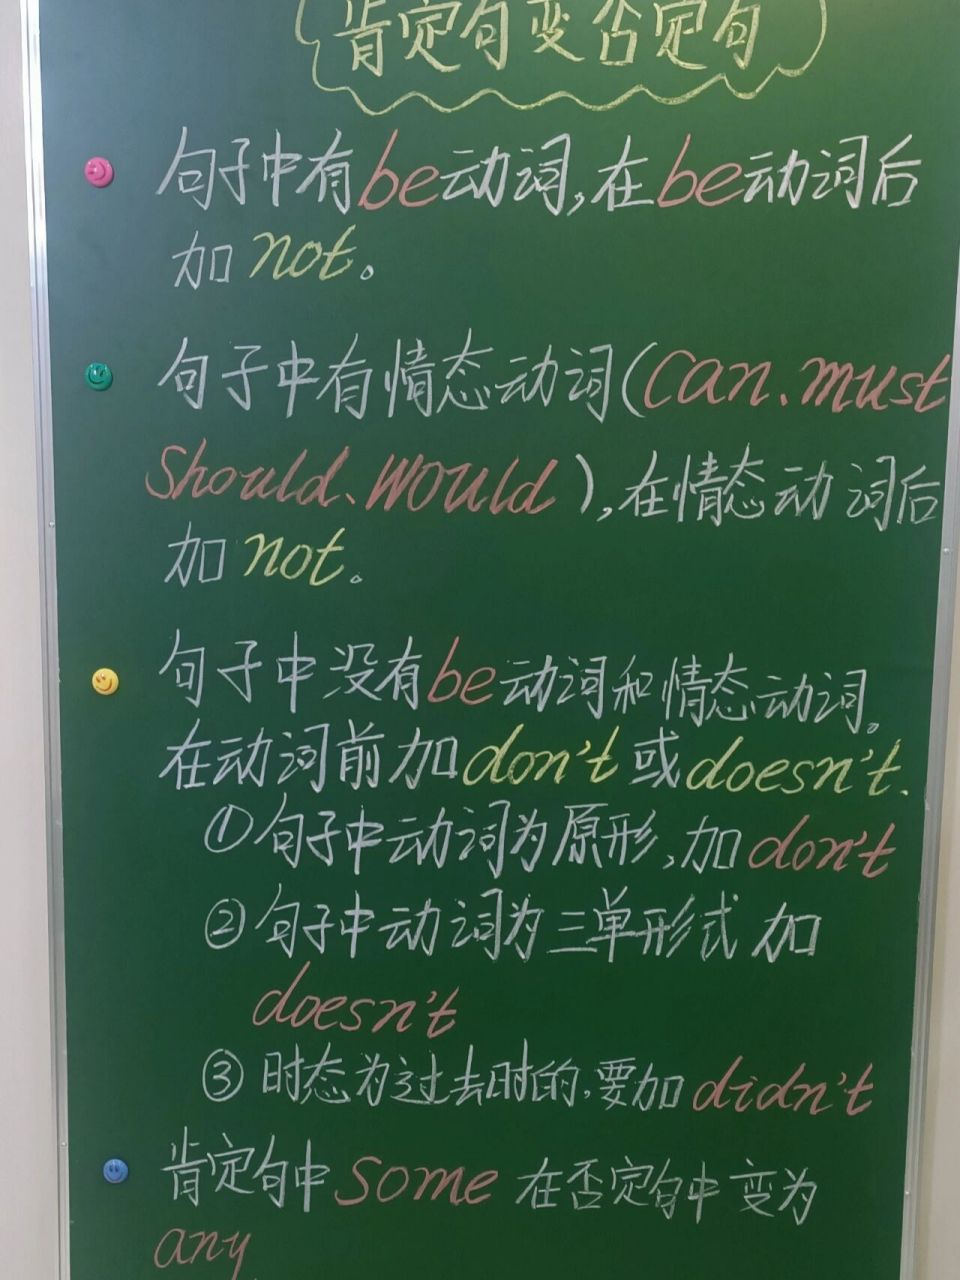 肯定句变否定句
句子中有be动词,在be动词后
加not。
句子中有情态动词(can、must
should、would),在情态动词后
加not。
句子中没有be动词和情态动词。
在动词前加don't或doesn't.
①句子中动词为原形,加don't
②句子中动词为三单形式 加
doesn't
③时态为过去时的,要加didn't
肯定句中some在否定句中变为
any